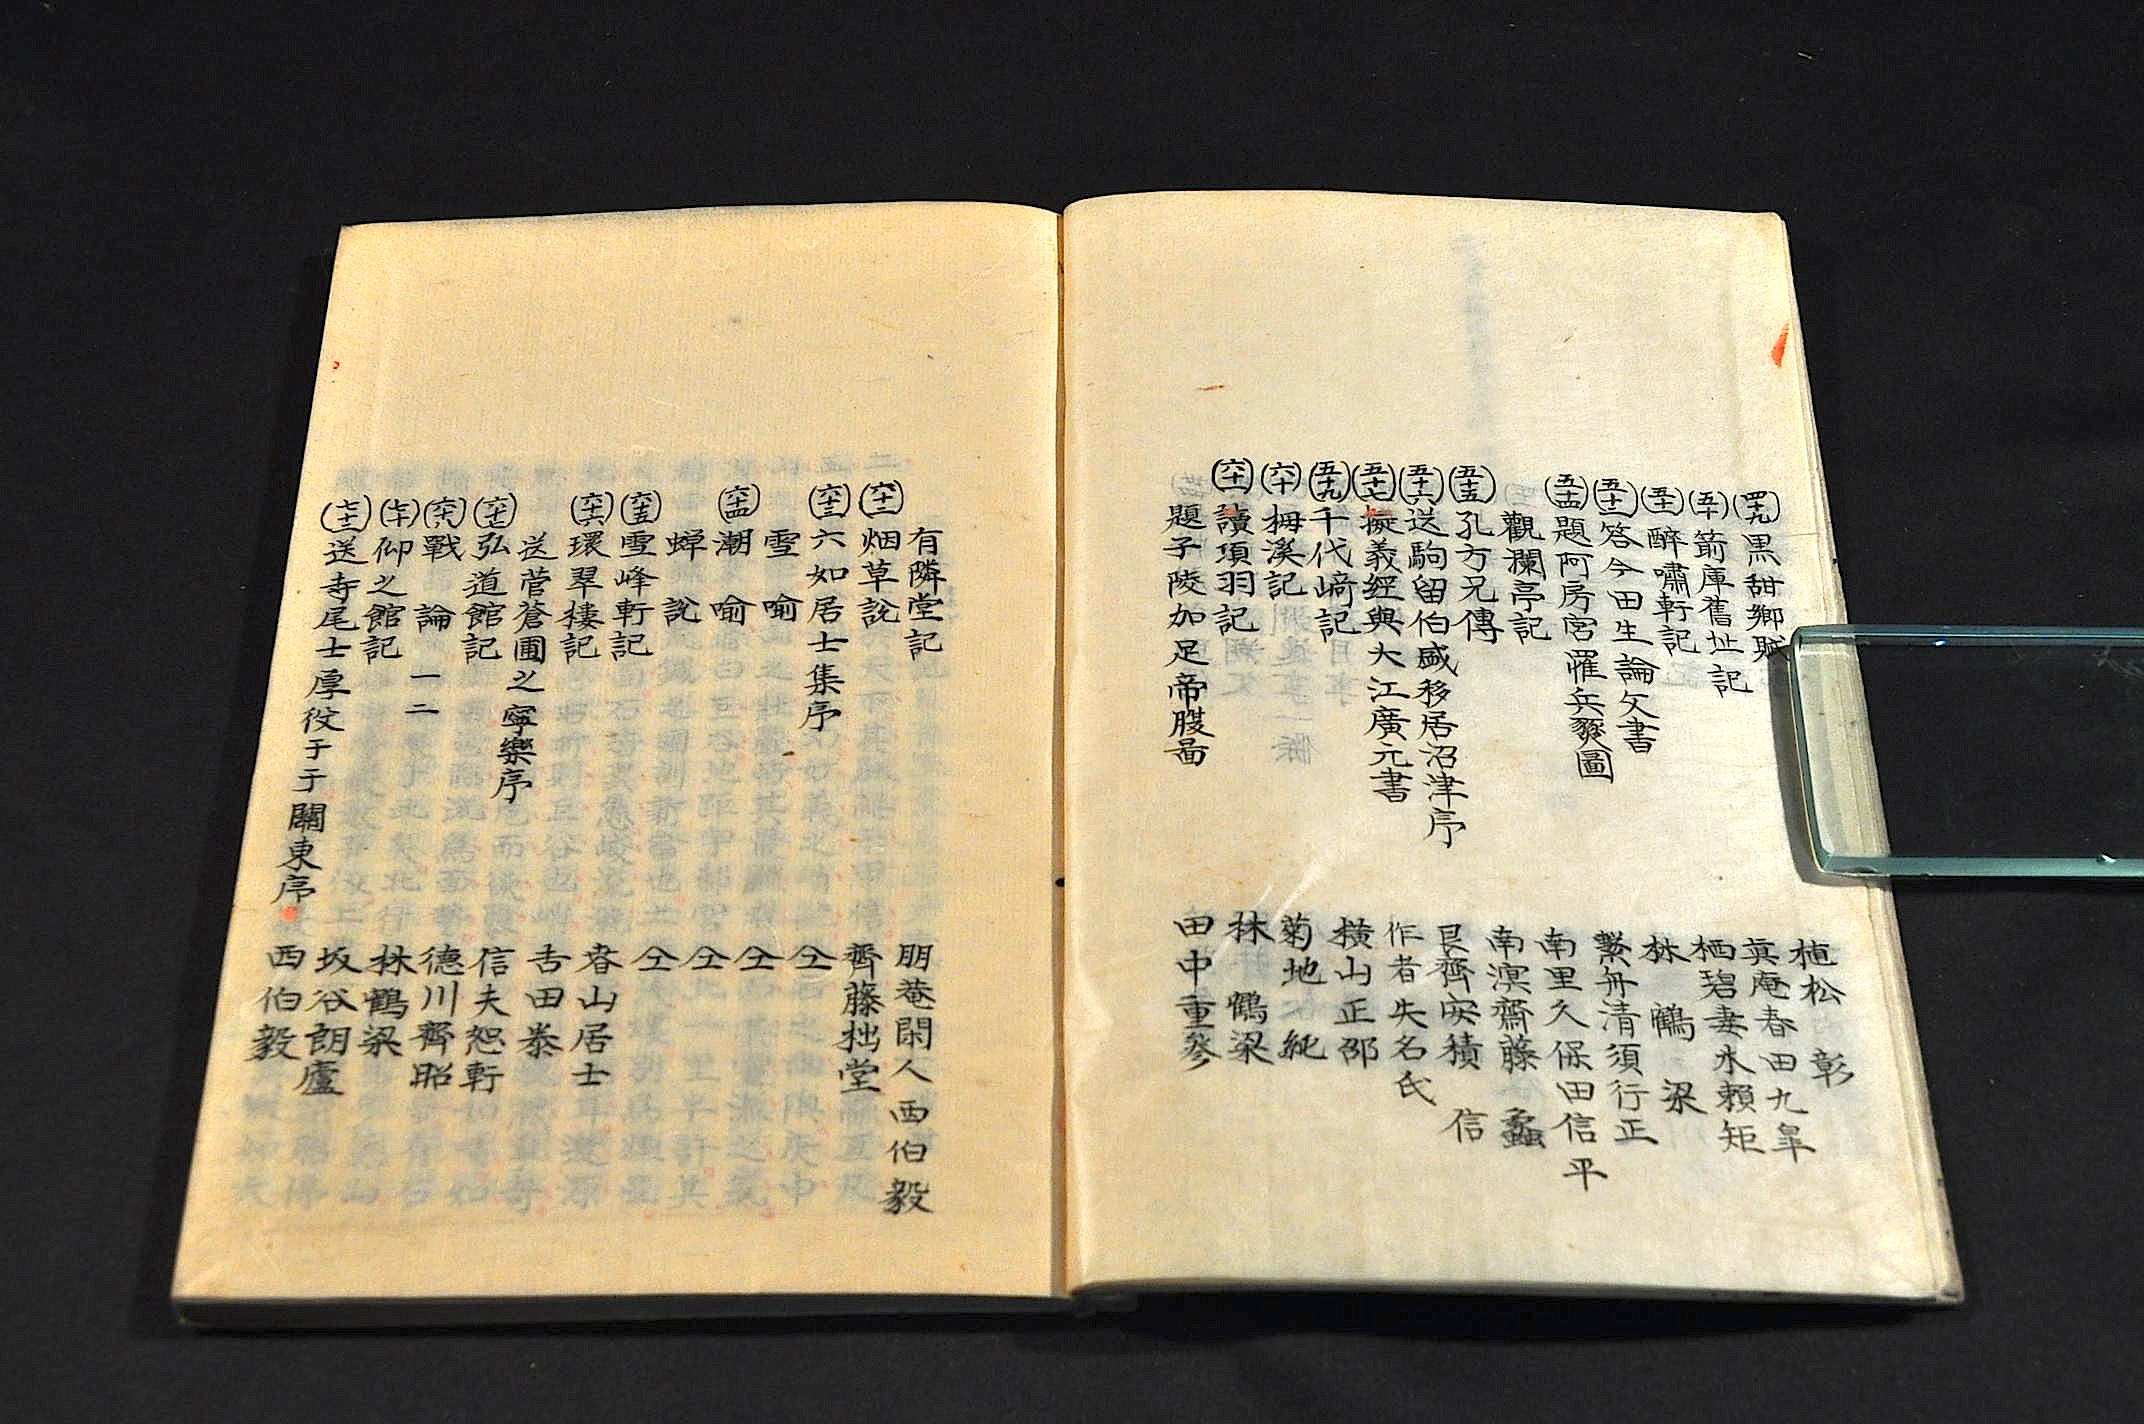 (四十九)黒甜郷賦 植松 彰
(五十)箭庫舊址記 真庵春田九皐
(五十一)醉嘯軒記 栖碧妻木頼矩
(五十二)答今田生論文書 林 鶴 梁
(五十四)題阿房宮罹兵燹圖 繫舟清須行正
觀瀾亭記 南里久保田信平
(五十五)孔方兄傳 南溟齋藤 蠡
(五十六)送駒留伯盛移居沼津序 艮齊安積 信
(五十七)擬義經與大江廣元書 作者失名氏
(五十九)千代﨑記 横山正邵
(六十)栂溪記 菊地純
(六十一)讀項羽記 林鶴梁
題子陵加足帝腹啚 田中重參
有隣堂記 朋菴閑人西伯毅
(六十二)烟草説 齊藤拙堂
(六十三)六如居士集序 仝
雪喻 仝
(六十四)潮喻 仝
蝉説 仝
(六十五)雪峰軒記 春山居士
(六十六)環翠楼記 吉田泰
送菅蒼圃之寧樂序 信夫恕軒
(六十七)弘道館記 德川齊昭
(六十八)戰論一二 林鶴梁
(七十)仰之館記 坂谷朗廬
(七十二)送寺尾士厚役于于關東序 西伯毅